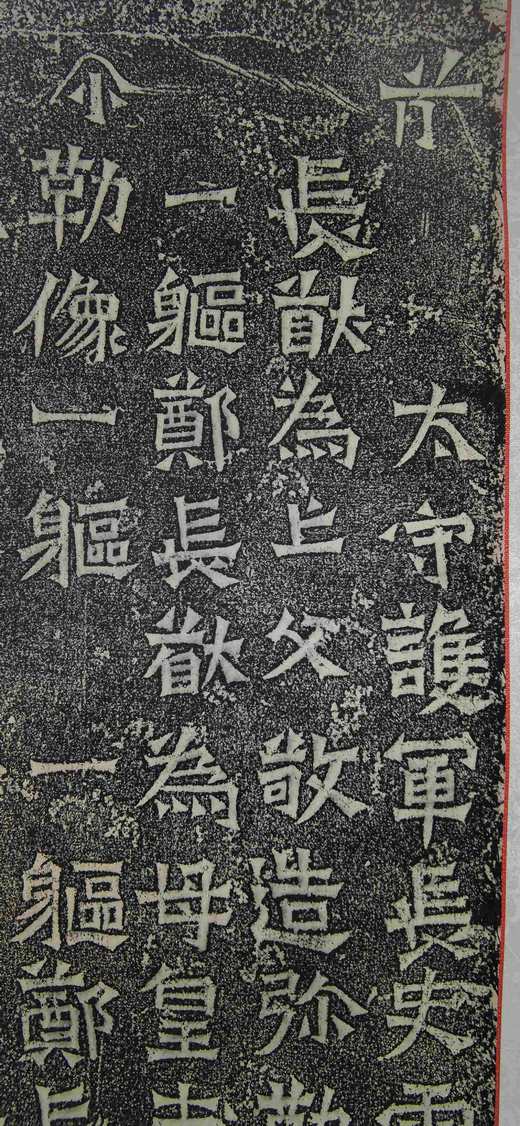 前太守護軍長史雲
長猷為亡父敬造弥勒
一軀鄭長猷為母皇
尒勒像一軀一軀鄭長